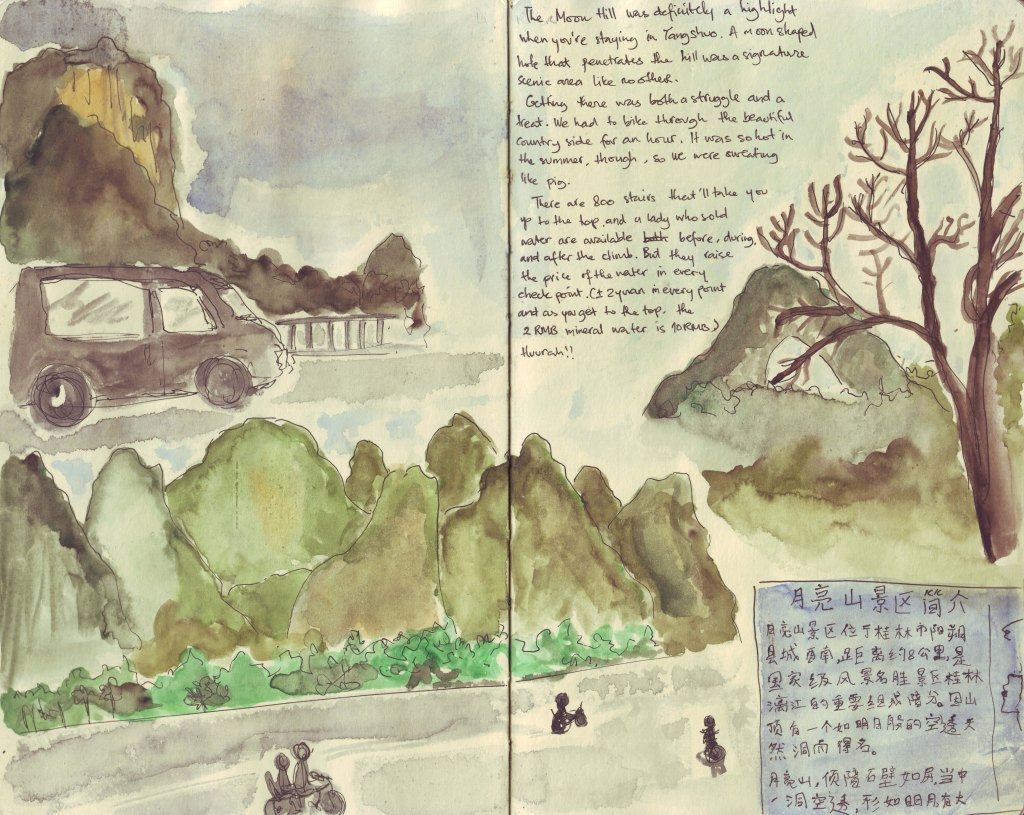 The Moon Hill was definitely a highlight
when you're staying in Yangshuo. A moon shaped
hole that penetrates the hill was a signature
scenic area like no other.
Getting there was both a struggle and a
treat. We had to bike through the beautiful
country side for an hour. It was so hot in
the summer, though, so we were sweating
like pig.
There are 800 stairs that'll take you
up to the top. and a lady who sold
water are available before, during,
and after the climb. But they raise
the price of the water in every
check point. (± 2 yuan in every point
and as you get to the top. the
2 RMB mineral water is 10 RMB)
Huurah!!
月亮山景区简介
月亮山景区位于桂林市阳朔
县城西南,距离约8公里,是
国家级风景名胜景区桂林
漓江的重要组成部分。因山
顶有一个如明月般的空透天
然洞而得名。
月亮山,石壁如屏,当中
一洞空透,形如明月,有大